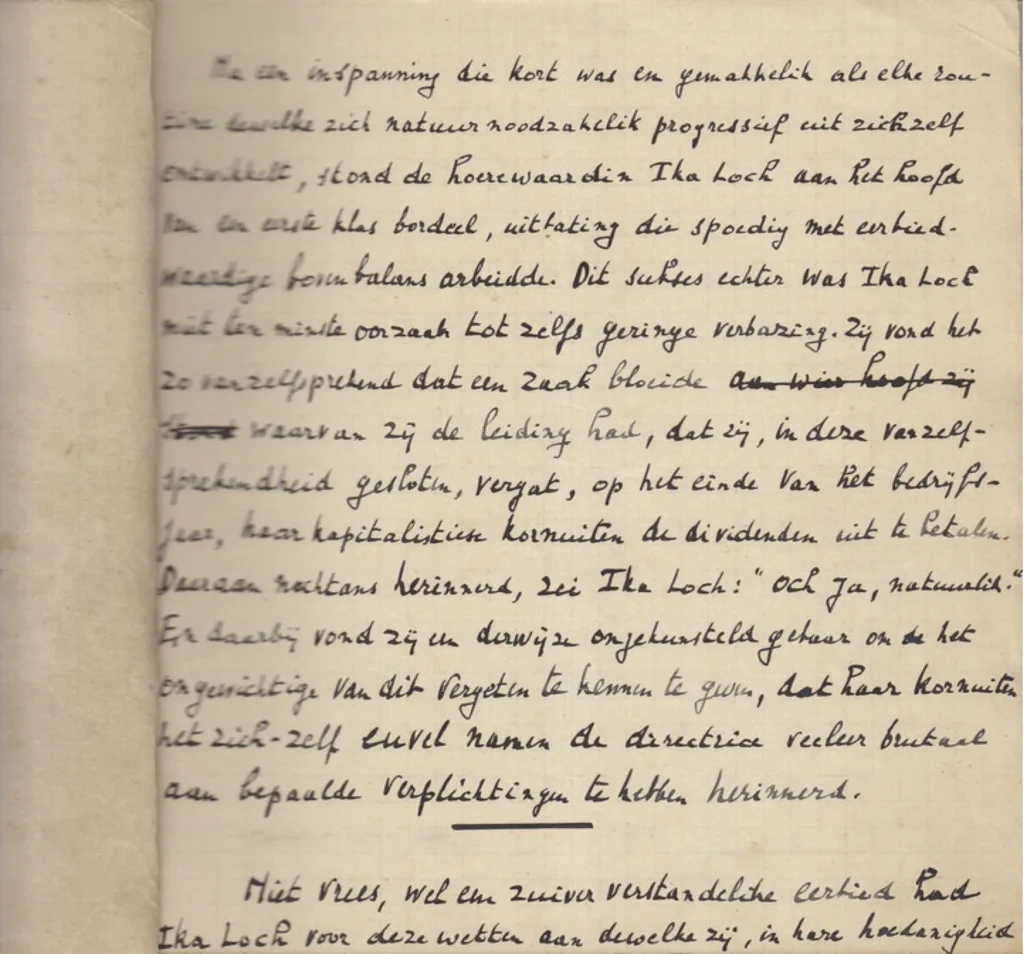 Na een inspanning die kort was en gemakkelik als elke rou-
tine dewelke zich natuurnoodzakelik progressief uit zichzelf
ontwikkelt, stond de hoerewaardin Ika Loch aan het hoofd
van een eerste klas bordeel, uitbating die spoedig met eerbied-
waardige bovenbalans arbeidde. Dit sukses echter was Ika Loch
niet ten minste oorzaak tot zelfs geringe verbazing. Zij vond het
zo vanzelfsprekend dat een zaak bloeide aan wier hoofd zij
stond waarvan zij de leiding had, dat zij, in deze vanzelf-
sprekendheid gesloten, vergat, op het einde van het bedrijfs-
jaar, haar kapitalistiese kornuiten de dividenden uit te betalen.
Daaraan nochtans herinnerd, zei Ika Loch: "Och ja, natuurlik."
En daarbij vond zij een derwijze ongekunsteld gebaar om de het
ongewichtige van dit vergeten te kennen te geven, dat haar kornuiten
het zich-zelf euvel namen de directrice veeleer brutaal
aan bepaalde verplichtingen te hebben herinnerd.
Niet vrees, wel een zuiver verstandelike eerbied had
Ika Loch voor deze wetten aan dewelke zij, in hare hoedanigheid